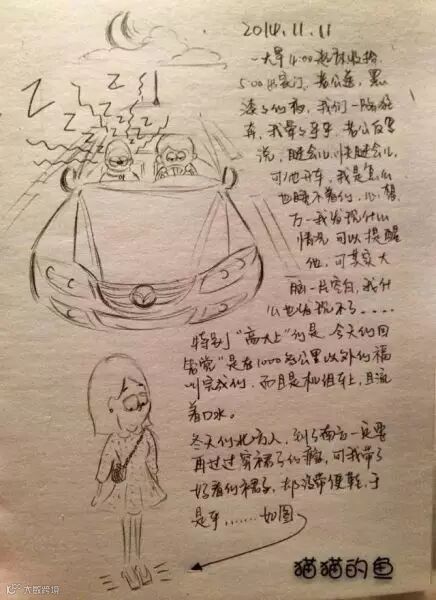 2014.11.11
一大早4:00起床收拾
5:00出家门,走公道,黑
漆了的夜,我们一路狂
奔,我晕了车,老公反复
说,睡会儿快睡会儿,
可他开车,我是怎么
也睡不着的,心想
万一我发现什么
情况可以提醒
他,可其实大
脑一片空白,我什
么也发现不了....
特别"高大上"的是今天的回
笼觉"是在1000多公里以外的福
州完成的,而且是机组车上,且流
着口水。
冬天的北方人,到了南方一定要
再过过穿裙子的瘾,可我带了
好看的裙子,却没带便鞋,于
是乎........如图
Z Z Z Z Z Z
猫猫的鱼
大数跨境